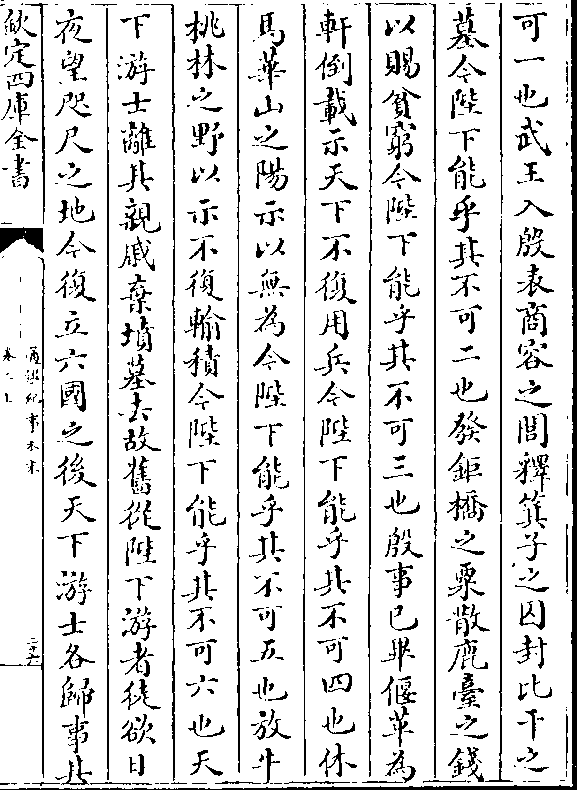 可一也武王入殷表商容之閭釋箕子之囚封比干之
墓今陛下能乎其不可二也發鉅橋之粟散鹿臺之錢
以賜貧窮今陛下能乎其不可三也殷事已畢偃革為
軒倒載示天下不復用兵今陛下能乎其不可四也休
馬華山之陽示以無為今陛下能乎其不可五也放牛
桃林之野以示不復輸積今陛下能乎其不可六也天
下游士離其親戚棄墳墓去故舊從陛下游者徒欲日
夜望咫尺之地今復立六國之後天下游士各歸事其
欽定四庫全書
通鑑紀事本末